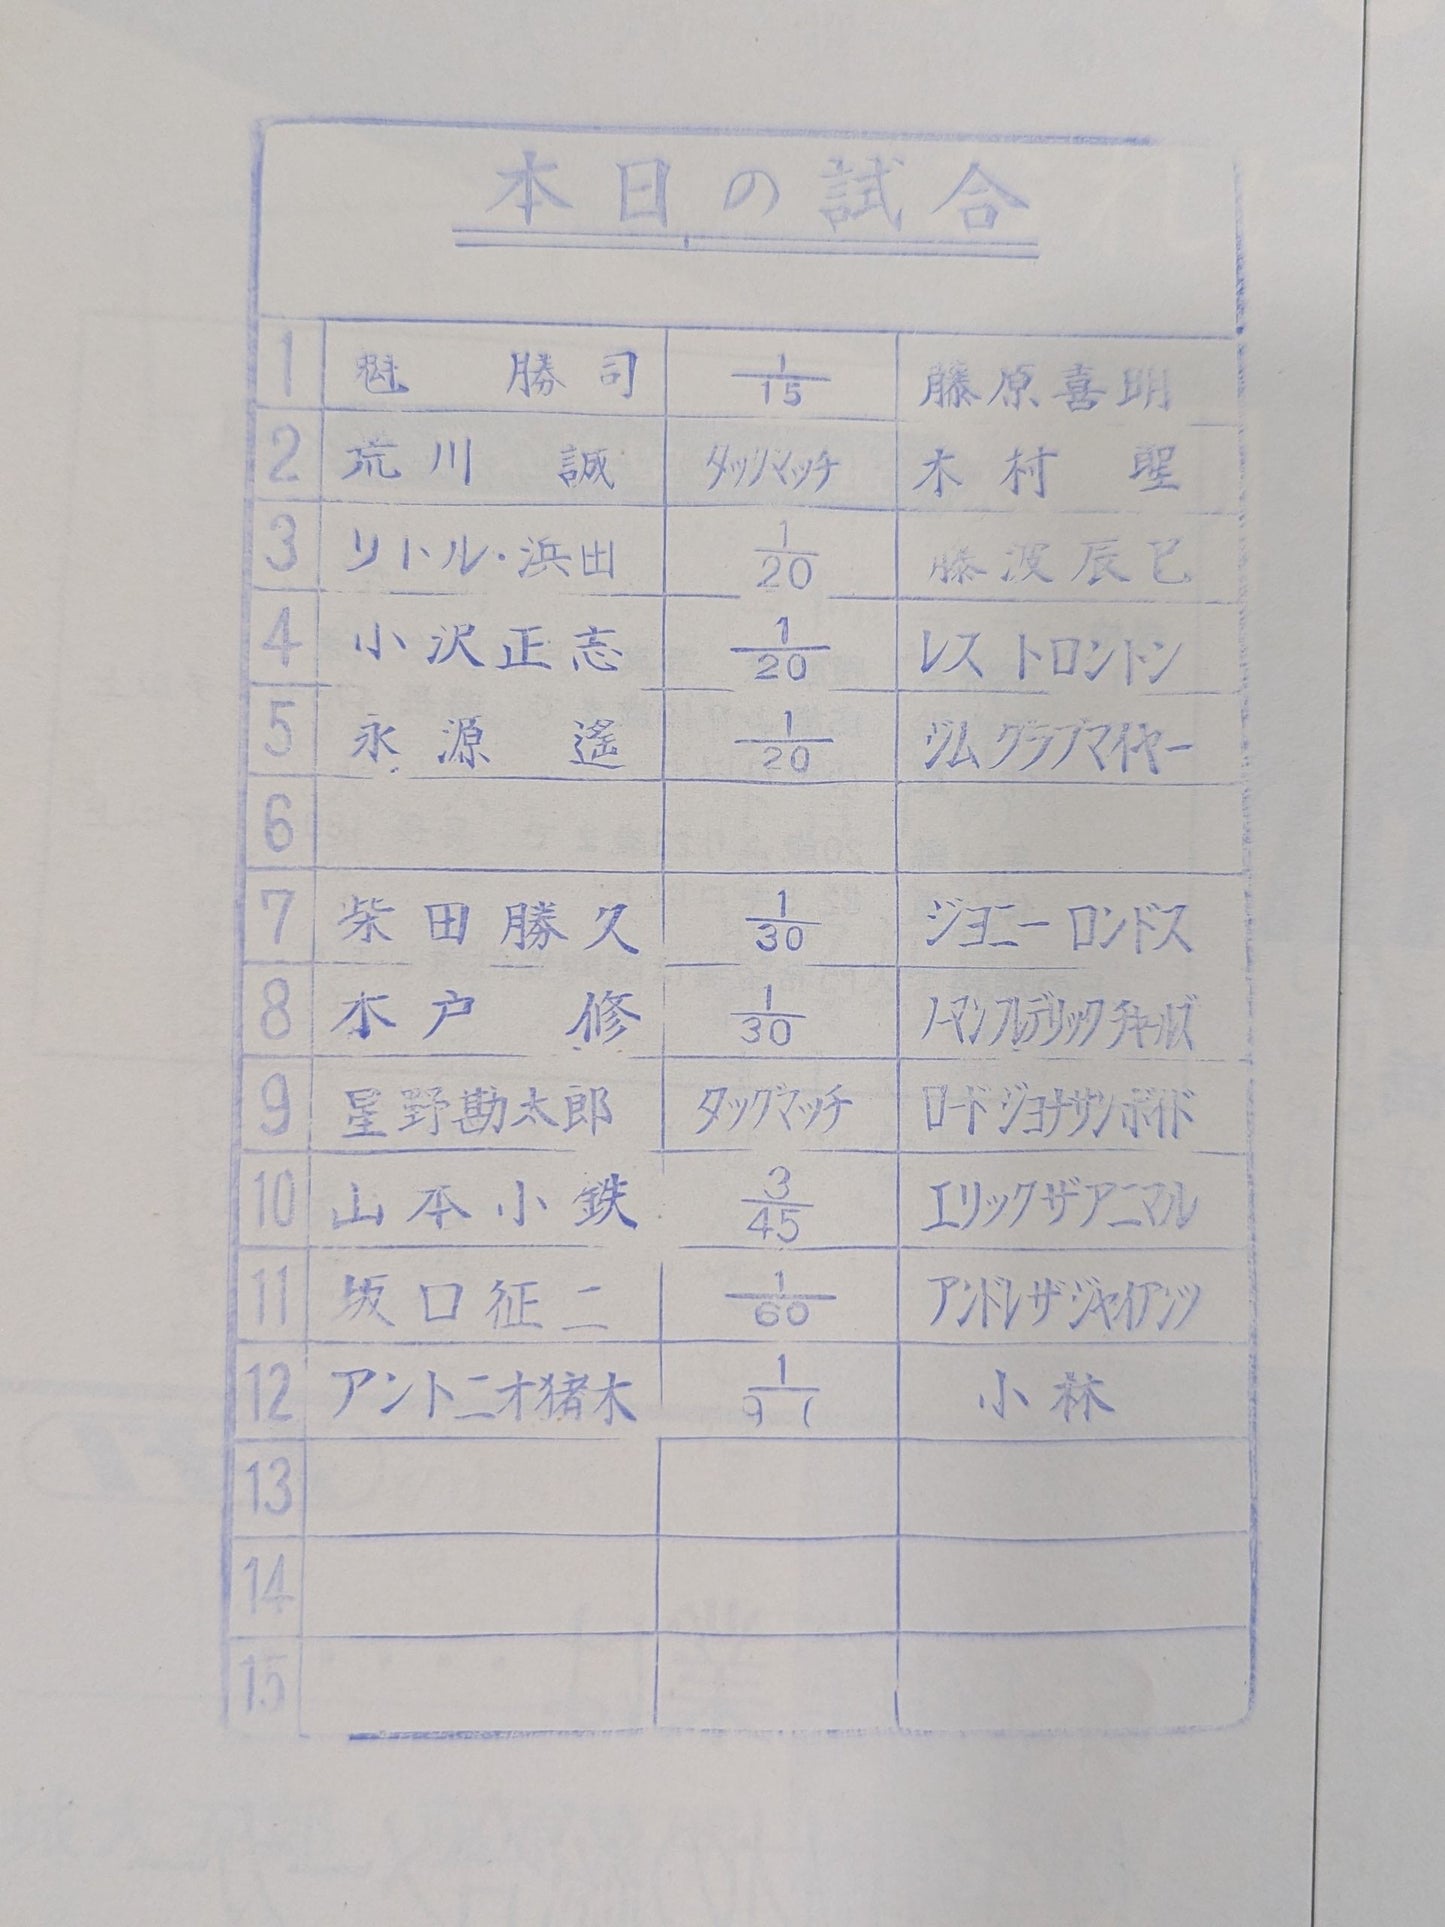 本日の試合
1 魁 勝司 1/15 藤原喜明
2 荒川 誠 タッグマッチ 木村 聖
3 リトル・浜田 1/20 藤波辰巳
4 小沢正志 1/20 レス トロントン
5 永源 遙 1/20 ジム グラブマイヤー
6
7 柴田勝久 1/30 ジョニー ロンドス
8 木戸 修 1/30 ノーマンフレデリックチャールズ
9 星野勘太郎 タッグマッチ ロード ジョナサンボイド
10 山本小鉄 3/45 エリックザアニマル
11 坂口征二 1/60 アンドレザジャイアンツ
12 アントニオ猪木 1/ 小林
13
14
15